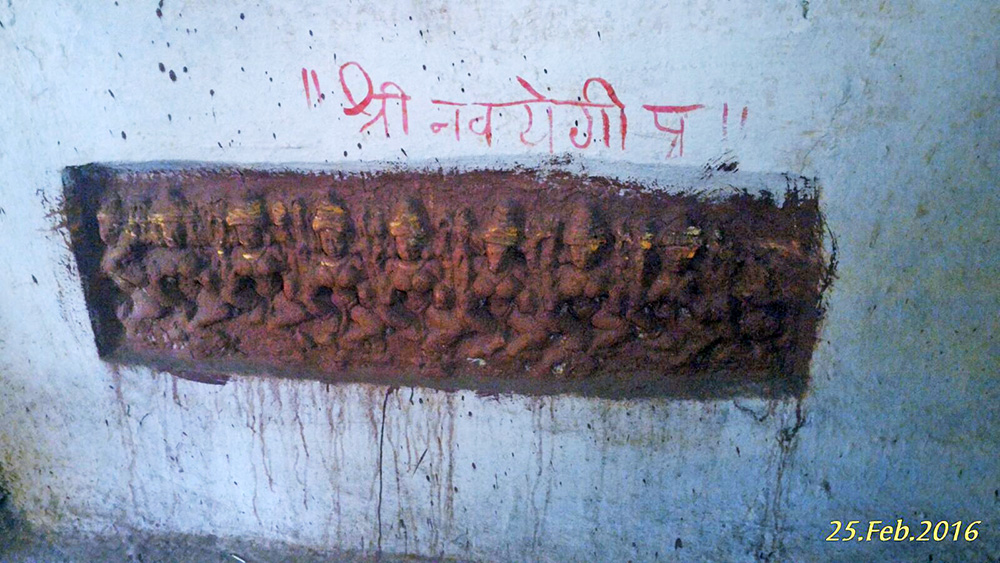 "श्री नव योगी प्र"
25.Feb.2016